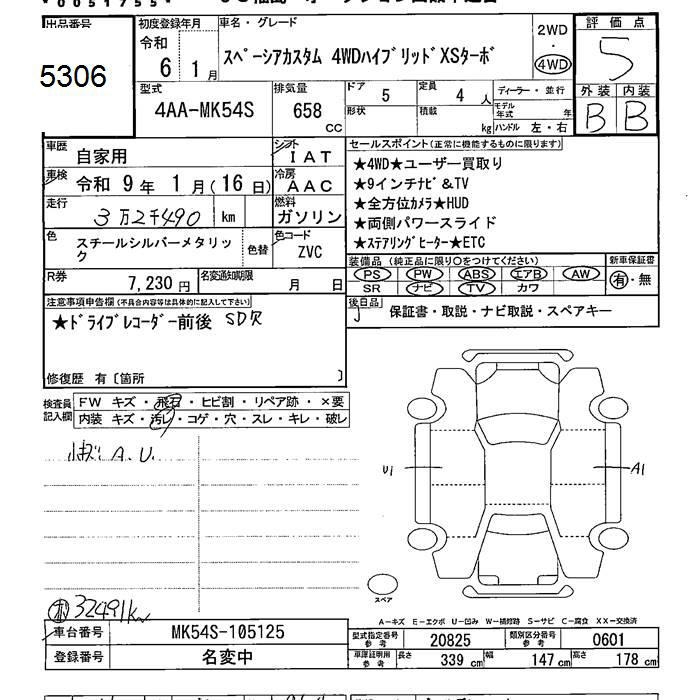 0051755
出品番号
5306
初度登録年月
令和
6 1月
車名・グレード
スペーシアカスタム 4WDハイブリッドXSターボ
2WD
・
4WD
評価点
5
外装 内装
B B
型式
4AA-MK54S
排気量
658
cc
ドア
5
定員
4 人
形状
積載
kg
ディーラー・並行
モデル
年式 年
ハンドル 左・右
車歴
自家用
シフト
IAT
車検
令和 9年 1月(16日)
冷房
AAC
走行
3万2千490 km
燃料
ガソリン
色
スチールシルバーメタリック
色替
色コード
ZVC
R券
7,230円
名変通知期限
月 日
セールスポイント(正常に機能するものに限ります)
★4WD★ユーザー買取り
★9インチナビ&TV
★全方位カメラ★HUD
★両側パワースライド
★ステアリングヒーター★ETC
装備品(純正品に限り○をつけてください)
PS PW ABS エアB AW
SR ナビ TV カワ
新車保証書
有・無
後日品
保証書・取説・ナビ取説・スペアキー
注意事項申告欄(不具合内容等は具体的に記入して下さい)
★ドライブレコーダー前後 SDR
修復歴 有〔箇所 〕
検査員
記入欄
FW キズ・飛石・ヒビ割・リペア跡・×要
内装 キズ・汚レ・コゲ・穴・スレ・キレ・破レ
A.U.
U1
A1
スペア
32491km
A-キズ E-エクボ U-凹み W-補修跡 S-サビ C-腐食 XX-交換済
車台番号
MK54S-105125
登録番号
名変中
型式指定番号
参考
20825
類別区分番号
参考
0601
車庫証明用
参考
長さ
339 cm
幅
147 cm
高さ
178 cm